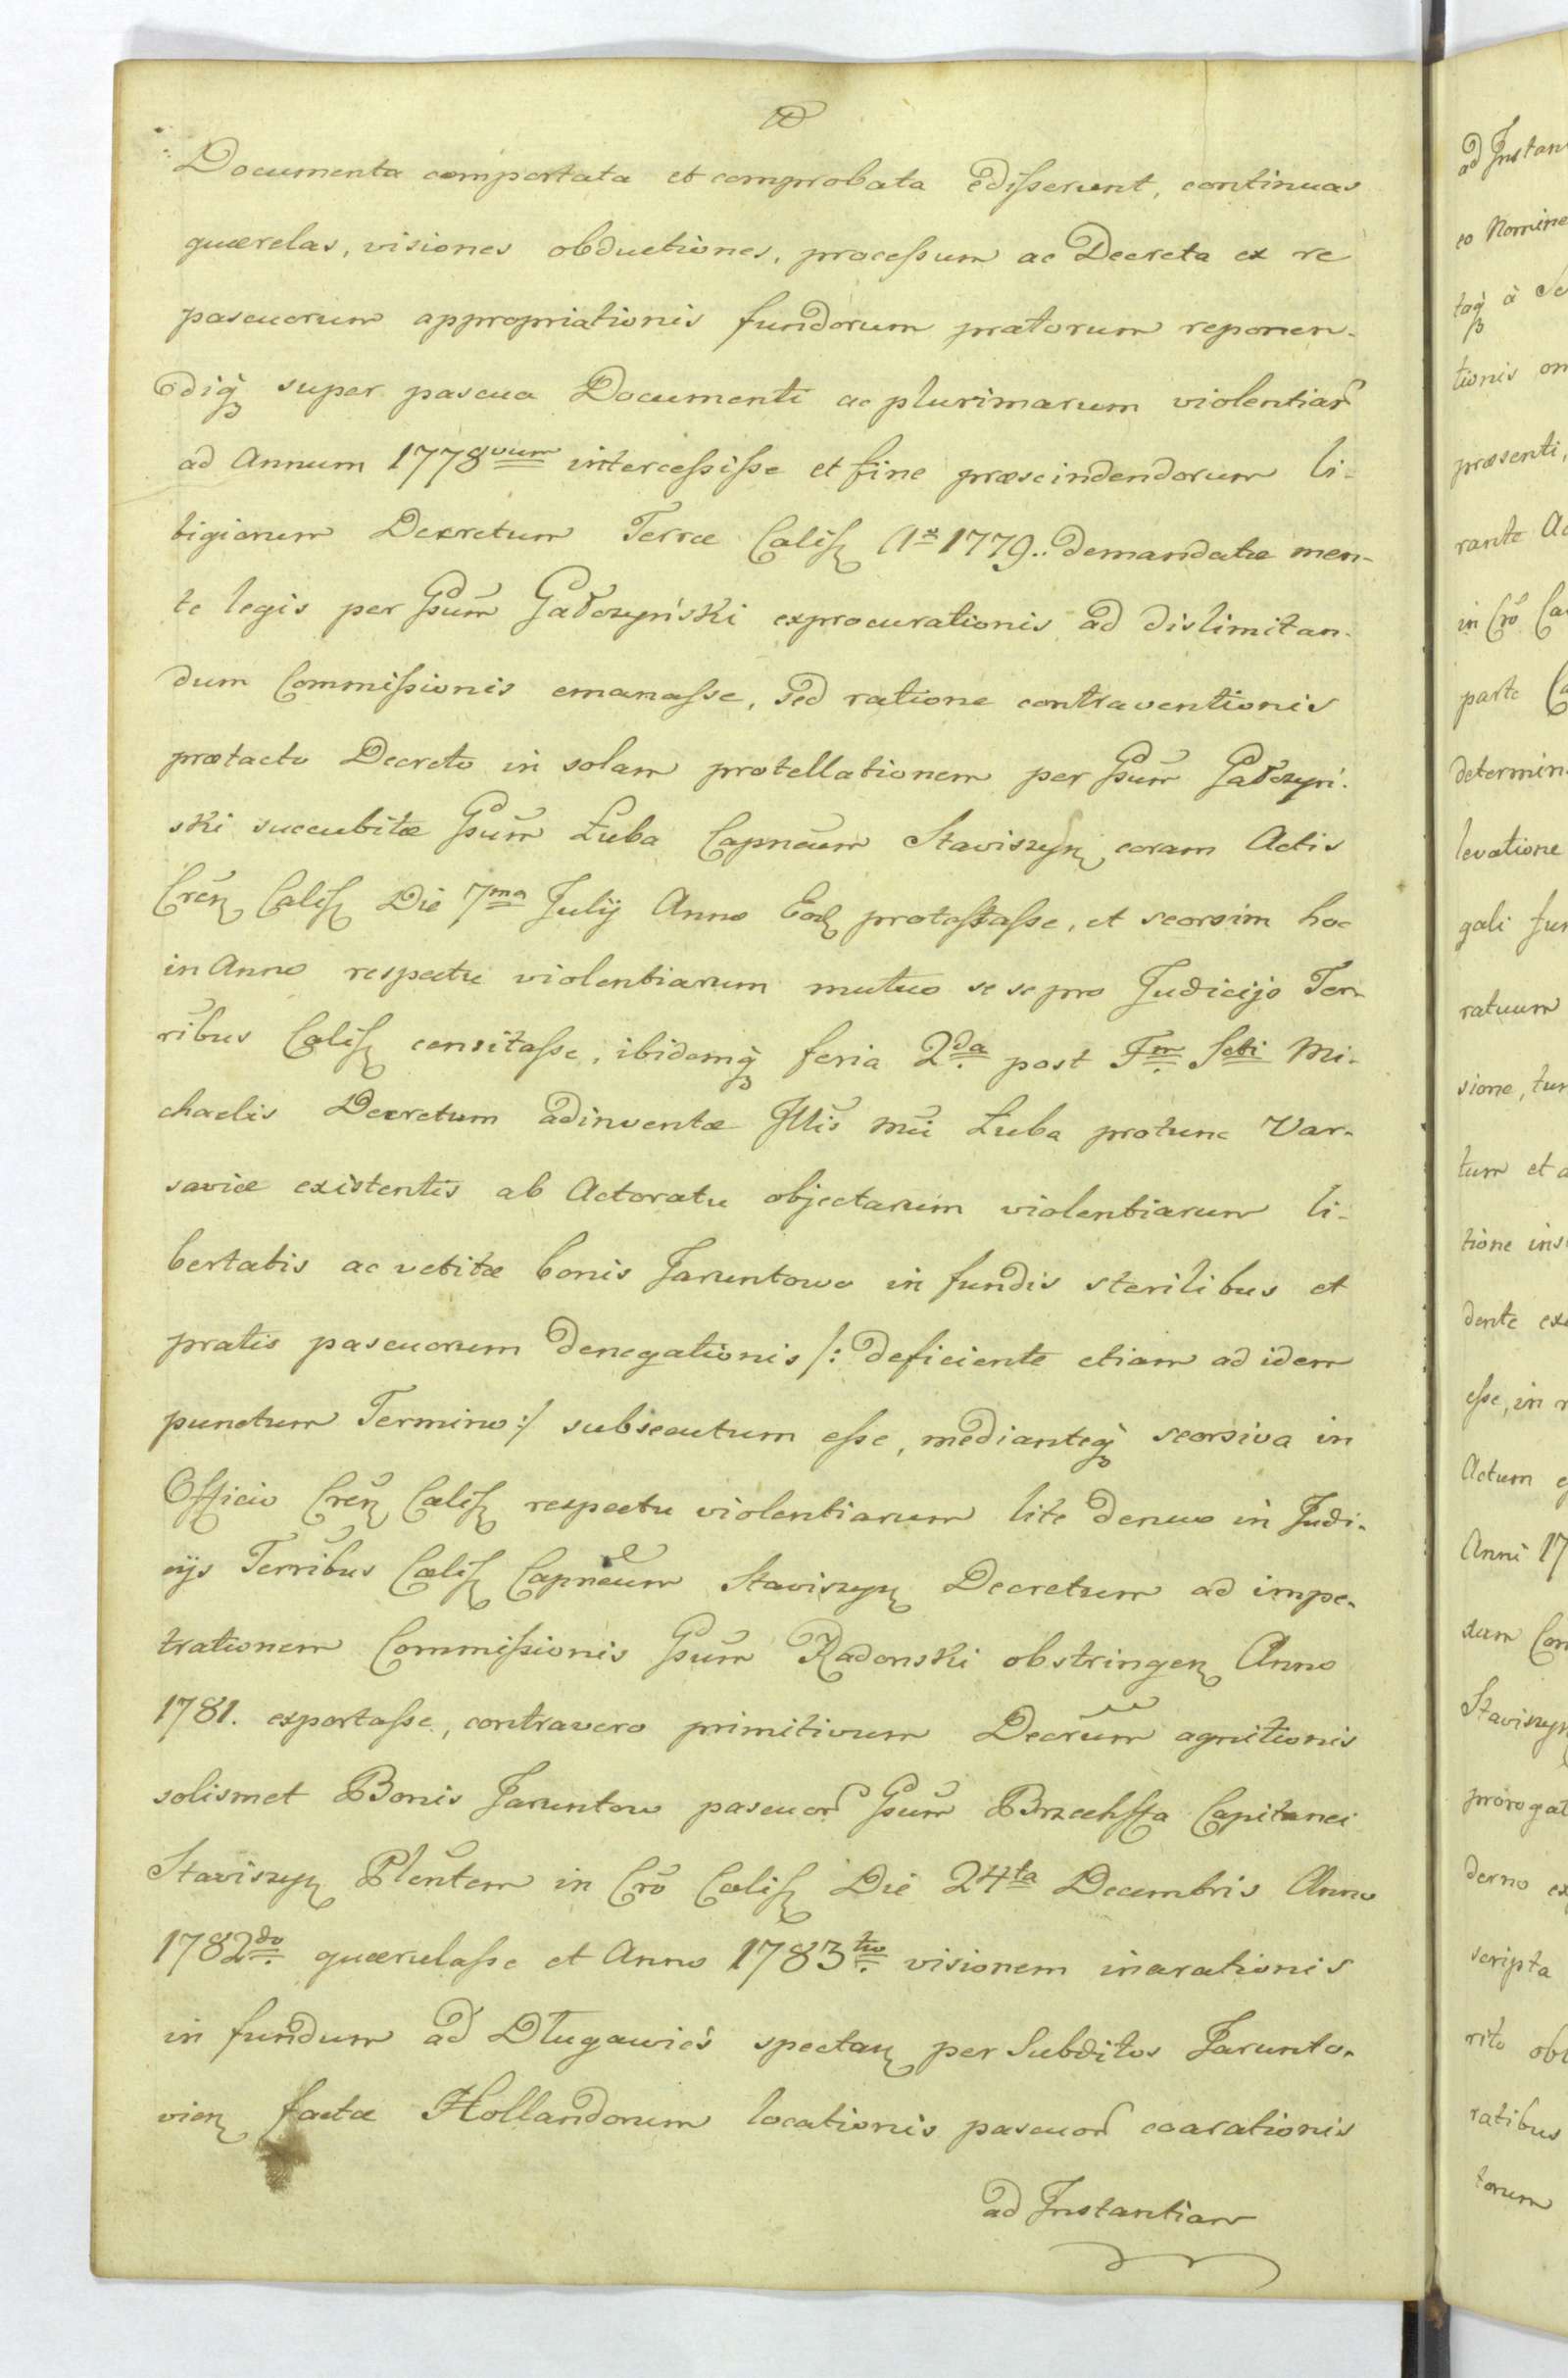 Documenta comportata et comprobata edisserunt, continuas
quærelas, visiones obductiones, processum ac Decreta ex re
pascuorum appropriationis fundorum pratorum reponen-
diq3 super pascua Documenti ac plurimarum violentiar
ad Annum 1778vum intercessisse et fine præscindendorum li-
tigiorum Decretum Terræ Calis 1779. demandatæ men-
te legis per Gsum Gałczyński exprocurationis ad dislimitan-
dum Commissionis emanasse, sed ratione contraventionis
prætacto Decreto in solam protellationem per Gsum Gałczyń-
ski succubitæ Gsum Łuba Capneum Staviszyn coram Actis
Cren Calis Die 7ma Julij Anno Eod protestasse, et seorsim hoc
in Anno respectu violentiarum mutuo se se pro Judicijs Ter-
ribus Calis consitasse, ibidemq3 feria 2da post Fm Scti Mi-
chaelis Decretum adinventæ Illis Mci Łuba protunc Var-
saviæ existentis ab Actoratu objectarum violentiarum li-
bertatis ac vetitæ bonis Jaruntowo in fundis sterilibus et
pratis pascuorum denegationis /: deficiente etiam ad idem
punctum Termino :/ subsecutum esse, medianteq3 seorsiva in
Officio Cren Calis respectu violentiarum lite denuo in Judi-
cijs Terribus Calis Capneum Staviszyn Decretum ad impe-
trationem Commissionis Gsum Radonski obstringen Anno
1781. exportasse, contravero primitivum Decrum agnitionis
solismet Bonis Jaruntow pascuor Gsum Brzechffa Capitanei
Staviszyn Plentem in Cro Calis Die 24ta Decembris Anno
1782do quærulasse et Anno 1783tio visionem inarationis
in fundum ad Długawieś spectan per Subditos Jarunto-
vien factæ Hollandorum locationis pascuor exarationis
ad Instantiam
ad Instan
eo Nomine
tionis
præsenti,
rante
in Cro Ca
parte
determin
levatione
gali
ratuum
sione, tu
tum et
tione ins
dente ex
esse, in
Actum
Anni 17
Staviszyn
prorogat
derno
scripta
rito
ratibus
torum